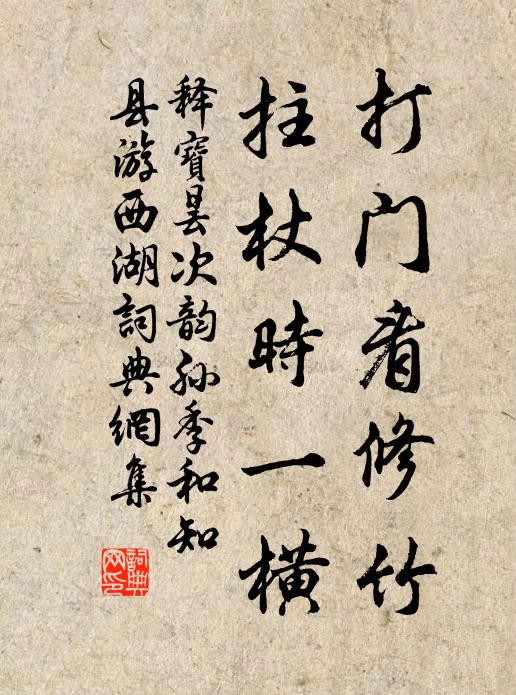 打门看修竹
拄杖時一橫
释寶昙次韵孙季和知
县游西湖詞典網集
詞典网印